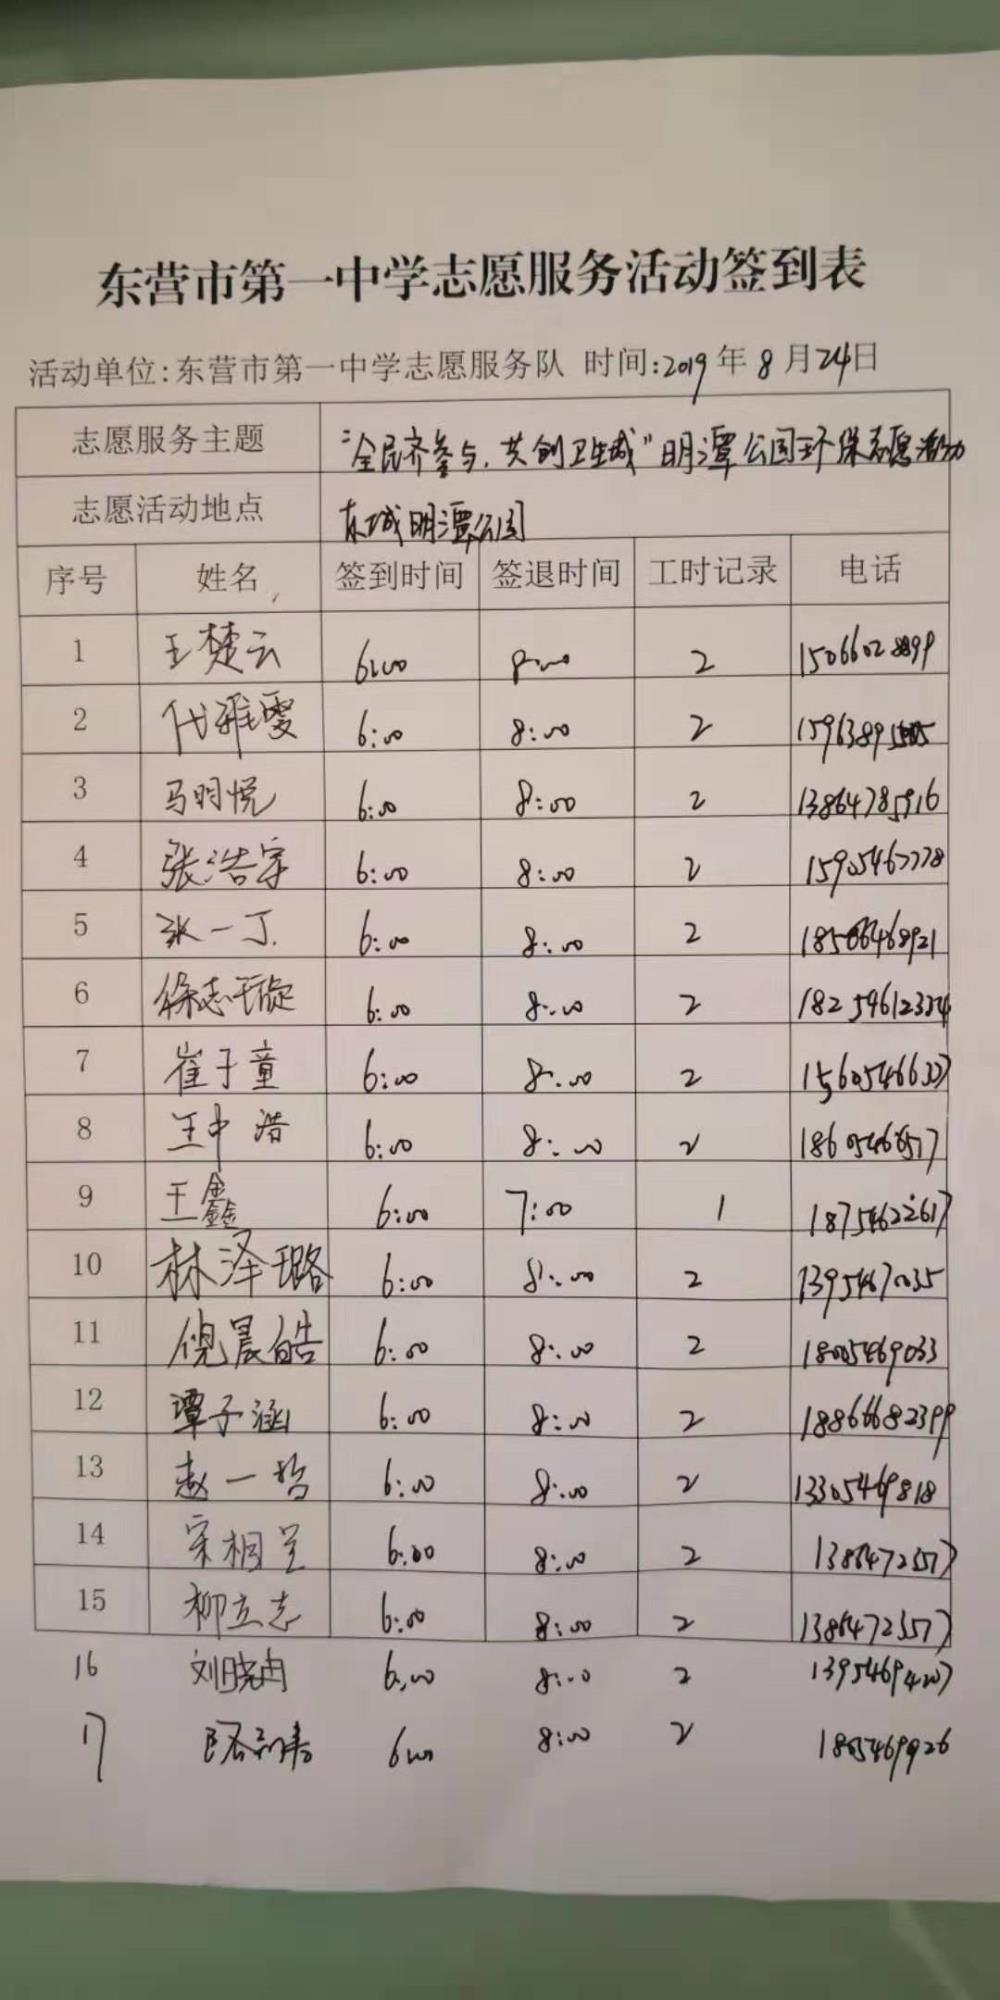 东营市第一中学志愿服务活动签到表
活动单位:东营市第一中学志愿服务队 时间:2019年8月24日
志愿服务主题 “全民齐参与，共创卫生城”明潭公园环保志愿活动
志愿活动地点 东城明潭公园
序号 姓名 签到时间 签退时间 工时记录 电话
1 王楚云 6:00 8:00 2 15066028899
2 代雅雯 6:00 8:00 2
3 马明悦 6:00 8:00 2 13864785916
4 张浩宇 6:00 8:00 2 15905467778
5 张一丁 6:00 8:00 2 18506468921
6 徐志璇 6:00 8:00 2
7 崔子童 6:00 8:00 2
8 王中浩 6:00 8:00 2
9 王鑫 6:00 7:00 1 18754622617
10 林泽璐 6:00 8:00 2 13954670035
11 倪晨皓 6:00 8:00 2 18005469033
12 谭子涵 6:00 8:00 2 18866682399
13 赵一哲 6:00 8:00 2 13305469818
14 宋相呈 6:00 8:00 2
15 柳立志 6:00 8:00 2
16 刘晓冉 6:00 8:00 2 13954694207
17 6:00 8:00 2 1805469926